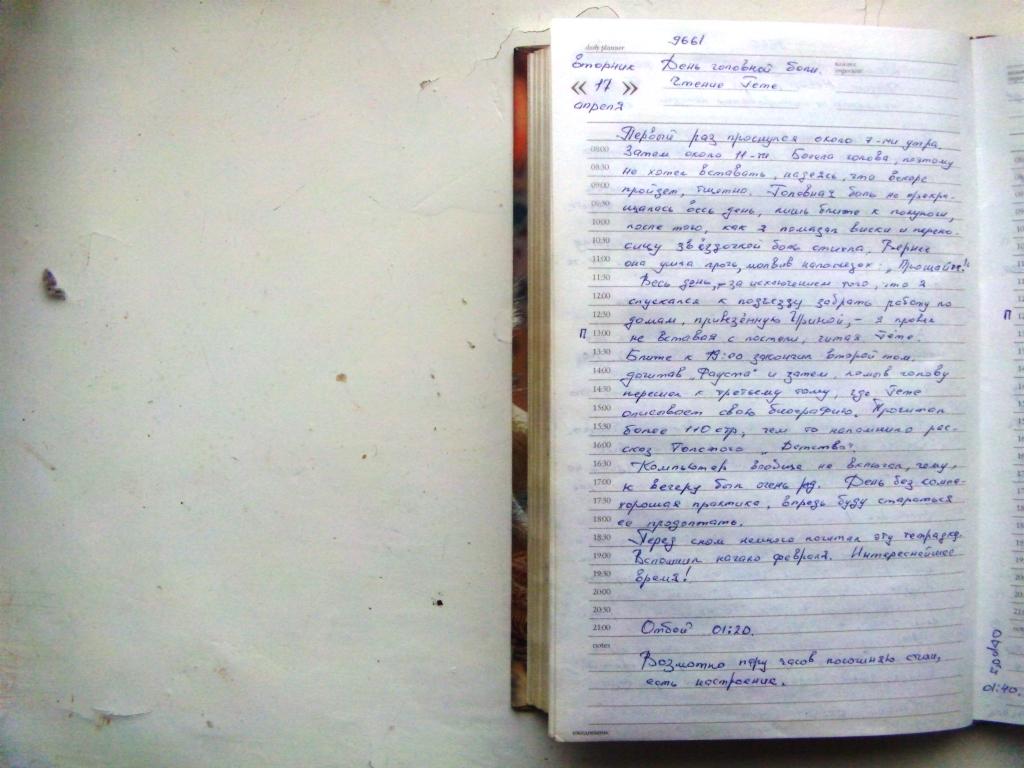 9661
daily planner
вторник День головной боли.
« 17 » Чтение Гёте.
апреля
Первый раз проснулся около 7-ми утра.
08:00 Затем около 11-ти. Болела голова, поэтому
08:30 не хотел вставать, надеясь, что вскоре
09:00 пройдет, тщетно. Головная боль не прекра-
09:30 щалась весь день, лишь ближе к полуночи,
10:00 после того, как я помазал виски и перено-
10:30 сицу звёздочкой боль стихла. Вернее
11:00 она ушла прочь, молвив напоследок: „Прощайте!“
11:30 Весь день, – за исключением того, что я
12:00 спускался к подъезду забрать работу по
12:30 домам, привезённую Ириной, – я провёл
П 13:00 не вставая с постели, читая Гёте.
13:30 Ближе к 19:00 закончил второй том,
14:00 дочитав „Фауста“ и затем, помыв голову
14:30 перешел к третьему тому, где Гёте
15:00 описывает свою биографию. Прочитал
15:30 более 110 стр, чем то напомнило рас-
16:00 сказ Толстого „Детство“.
16:30 Компьютер вообще не включал, чему,
17:00 к вечеру был очень рад. День без компа-
17:30 хорошая практика, впредь буду стараться
18:00 ее продолжать.
18:30 Перед сном немного почитал эту тетрадку.
19:00 Вспомнил начало февраля. Интереснейшее
19:30 время!
20:00
20:30
21:00 Отбой 01:20.
notes
Возможно пару часов посочиняю стихи,
есть настроение.
П
01:40.